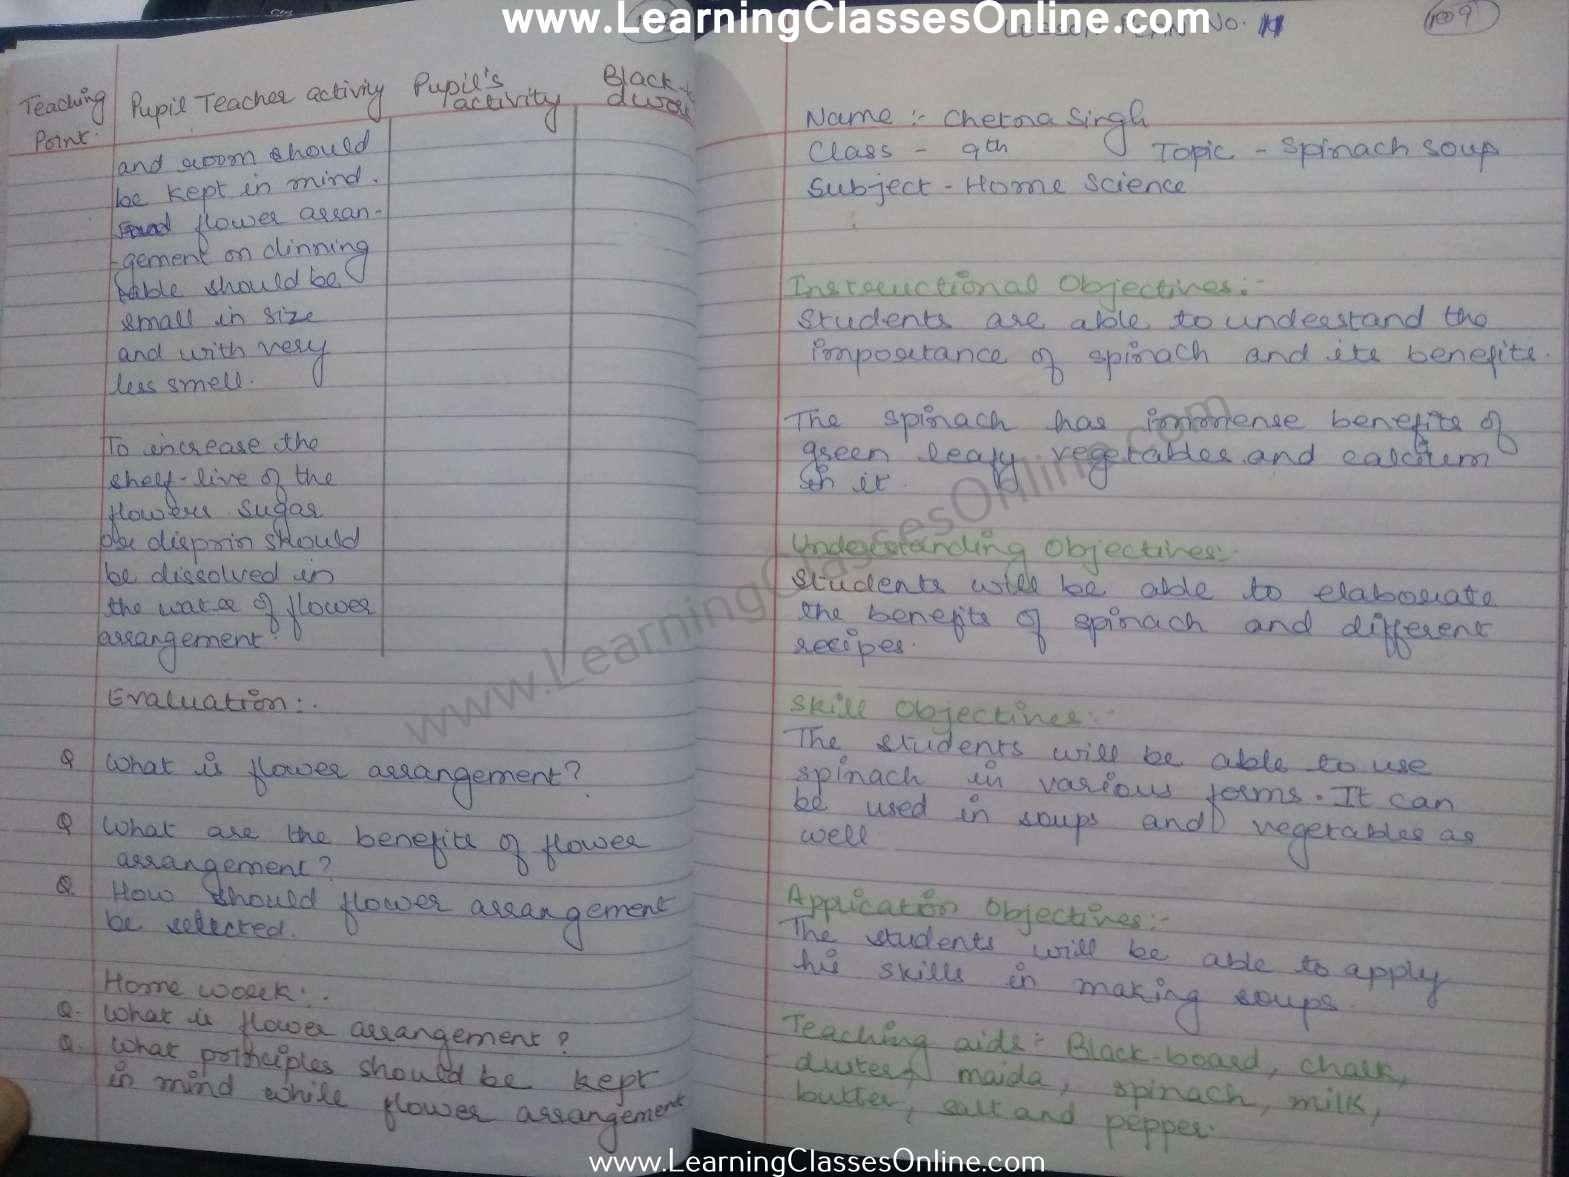 www.LearningClassesOnline.com
Teaching Point:
Pupil Teacher activity
Pupil's activity
Black-
and room should
be kept in mind.
flower arran-
-gement on dinning
table should be
small in size
and with very
less smell.
To increase the
shelf-live of the
flowers sugar
or disprin should
be dissolved in
the water of flower
arrangement.
Evaluation:.
Q What is flower arrangement?
Q What are the benefits of flower
arrangement?
Q. How should flower arrangement
be selected.
Home work:.
Q. What is flower arrangement?
Q. What principles should be kept
in mind while flower arrangement
LESSON PLAN NO. 11
109
Name :- Chetna Singh
Class - 9th Topic - Spinach soup
Subject - Home Science
Instructional Objectives:-
Students are able to understand the
importance of spinach and its benefits.
The spinach has immense benefits of
green leafy vegetables and calcium
in it.
Understanding Objectives:-
Students will be able to elaborate
the benefits of spinach and different
recipes.
Skill Objectives:-
The students will be able to use
spinach in various forms. It can
be used in soups and vegetables as
well
Application Objectives:-
The students will be able to apply
his skills in making soups.
Teaching aids:- Black-board, chalk,
duster, maida, spinach, milk,
butter, salt and pepper.
www.LearningClassesOnline.com
www.LearningClassesOnline.com